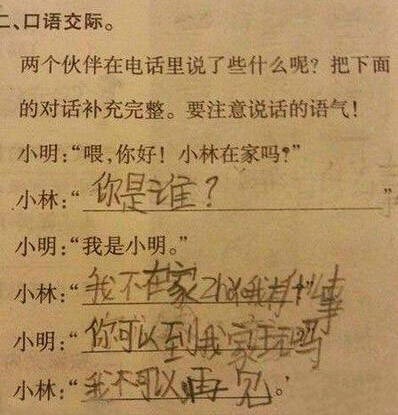 二、口语交际。
两个伙伴在电话里说了些什么呢？把下面
的对话补充完整。要注意说话的语气！
小明：“喂，你好！小林在家吗？”
小林：“你是谁？”
小明：“我是小明。”
小林：“我不在家 找我有什么事”
小明：“你可以到我家玩吗
小林：“我不可以 再见。”